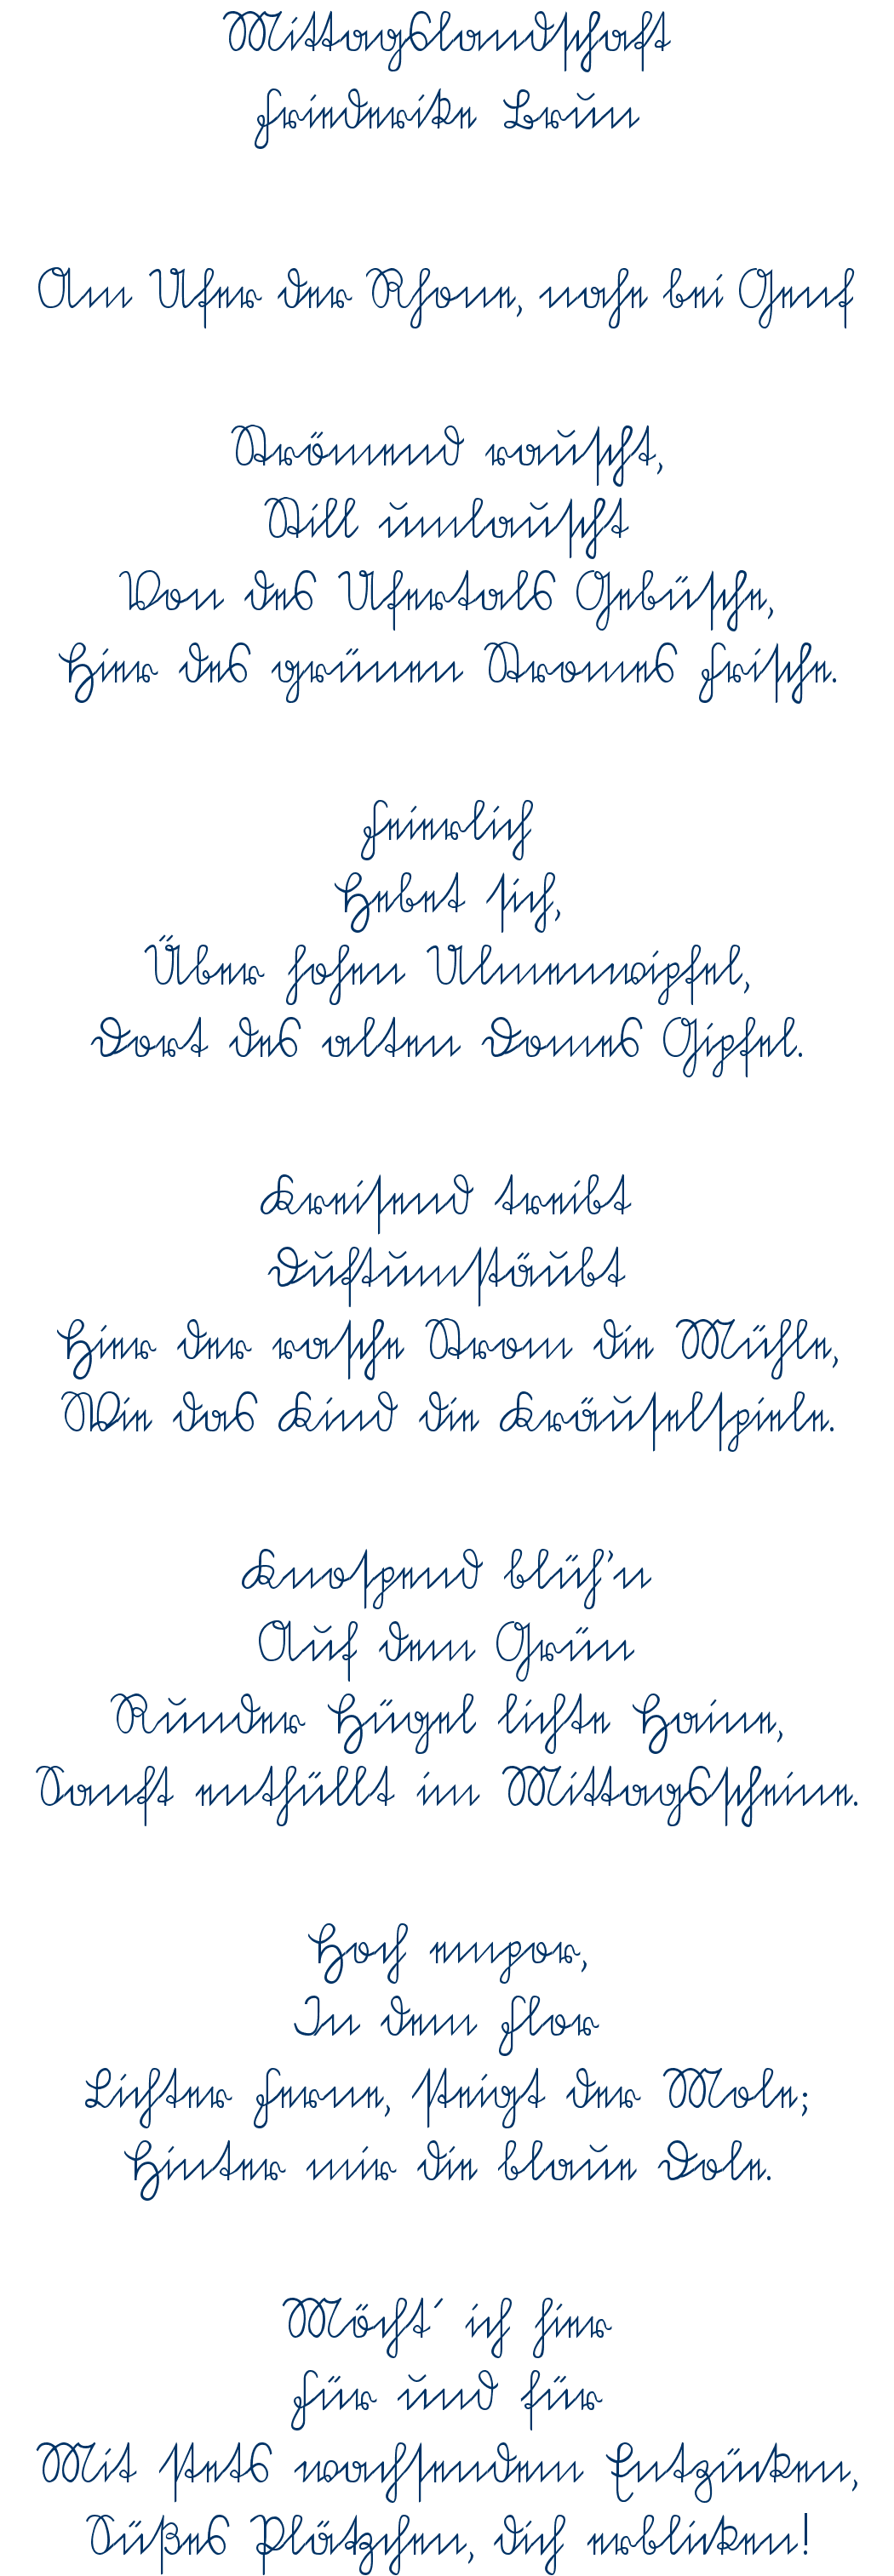 Mittagslandschaft
Friederike Brun
Am Ufer der Rhone, nahe bei Genf
Strömend rauscht,
Still umlauscht
Von des Ufertals Gebüsche,
Hier des grünen Stromes Frische.
Feierlich
Hebet sich,
Über hohen Ulmenwipfel,
Dort des alten Domes Gipfel.
Kreisend treibt
Duftumstäubt
Hier der rasche Strom die Mühle,
Wie das Kind die Kräuselspiele.
Knospend blüh’n
Auf dem Grün
Runder Hügel lichte Haine,
Sanft enthüllt im Mittagsscheine.
Hoch empor,
In dem Flor
Lichter Ferne, steigt der Mole;
Hinter mir die blaue Dole.
Möcht´ ich hier
Für und für
Mit stets wachsendem Entzücken,
Süßes Plätzchen, dich erblicken!